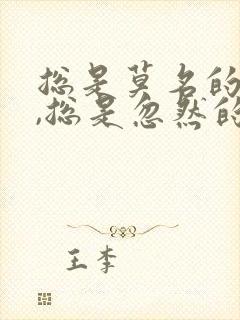 总是莫名的
,总是忽然的
王李